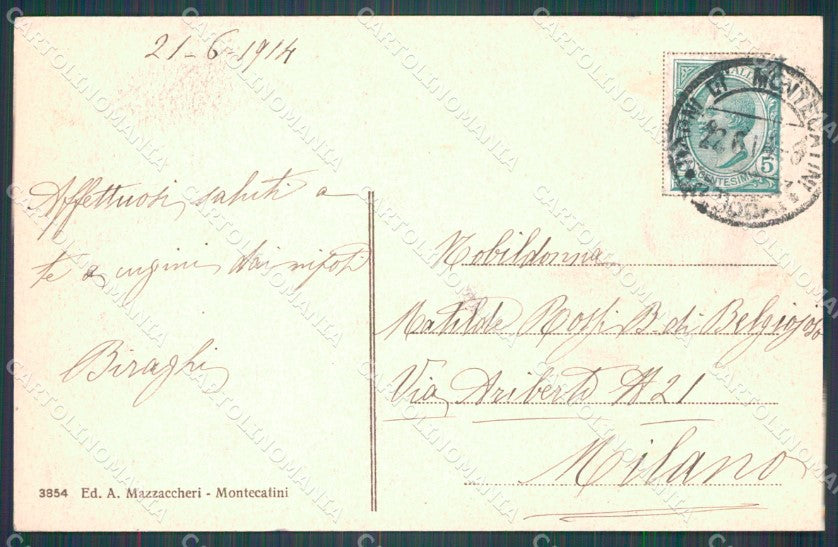 21-6-1914
Affettuosi saluti a
te e cugini dai nipoti
Biraghi
3854 Ed. A. Mazzaccheri - Montecatini
BAGNI DI MONTECATINI
22.6.1
5
CENTESIMI
Nobildonna
Matilde Rossi B. di Belgiojoso
Via Ariberto N 21
Milano
CARTOLINOMANIA